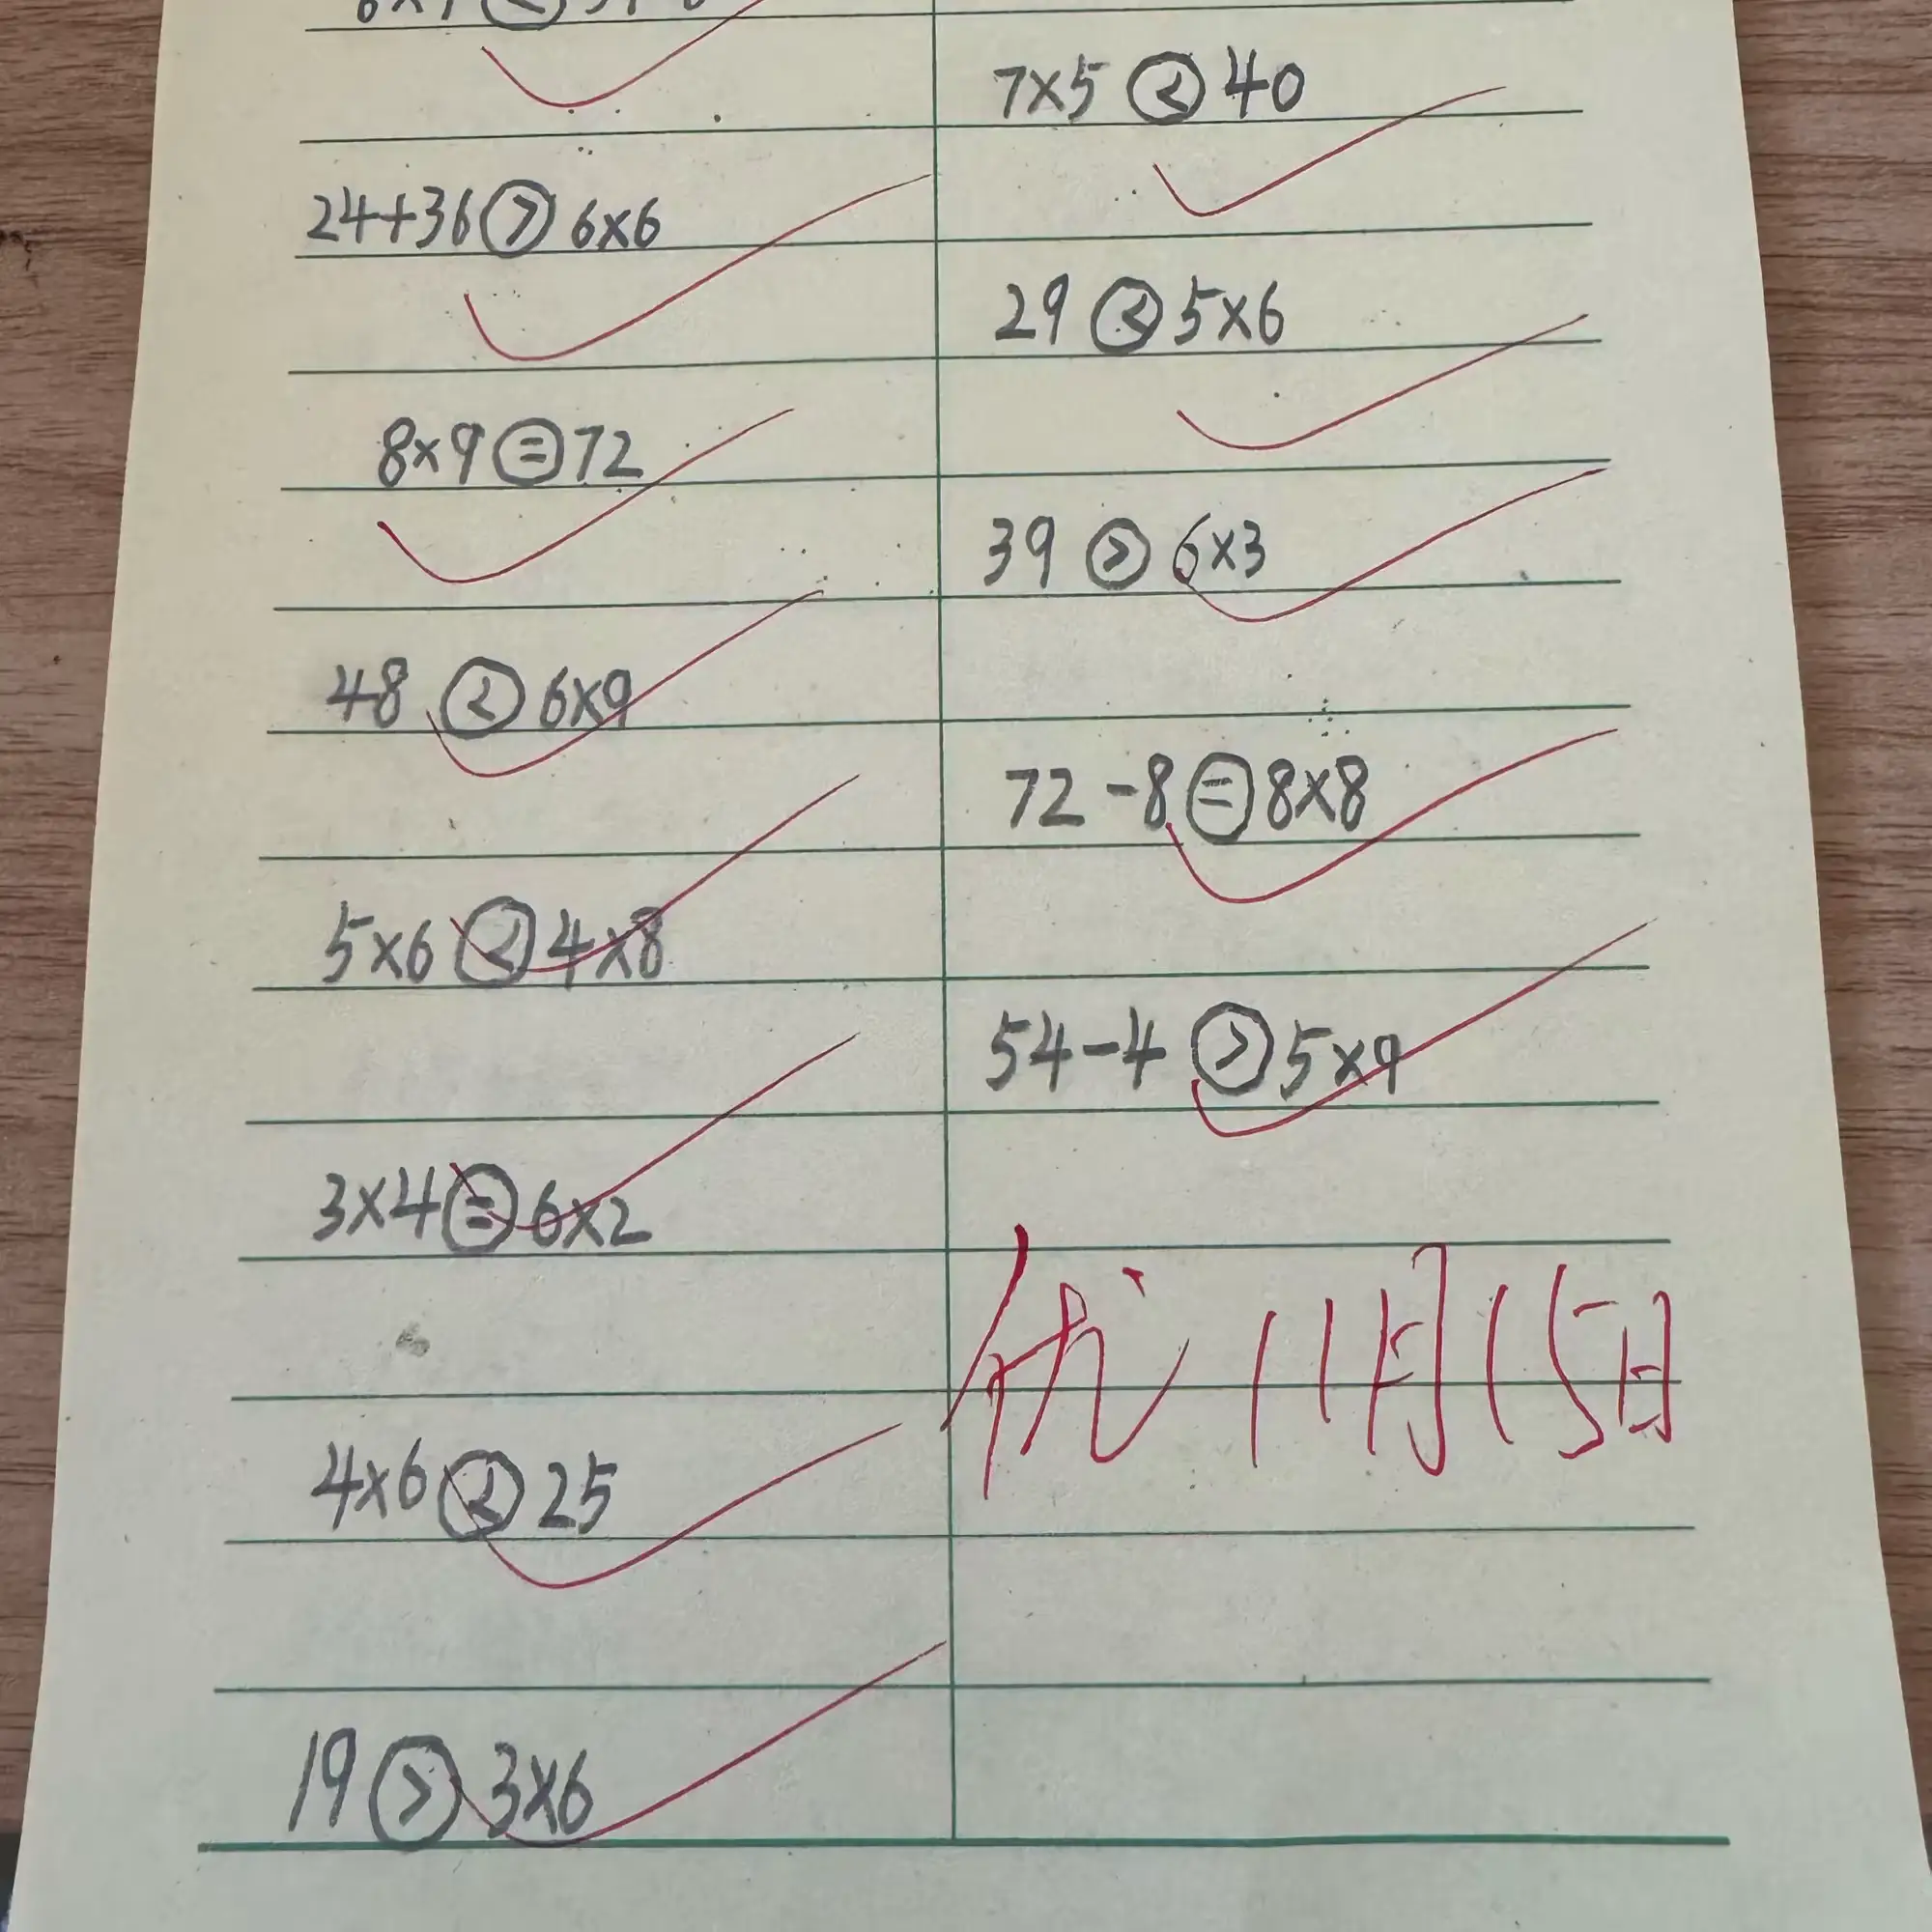 24+36>6×6
8×9=72
48<6×9
5×6<4×8
3×4=6×2
4×6<25
19>3×6
7×5<40
29<5×6
39>6×3
72-8=8×8
54-4>5×9
优 11月15日